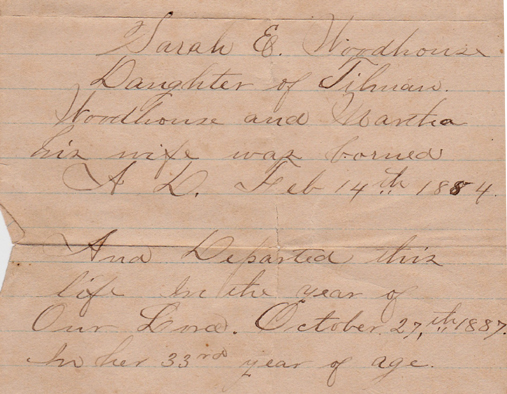 Sarah E. Woodhouse
Daughter of Tilman.
Woodhouse and Martha
his wife was borned
A D. Feb 14th 1884.
And Departed this
life In the year of
Our Lord. October 27,th 1887.
In her 33rd year of age.